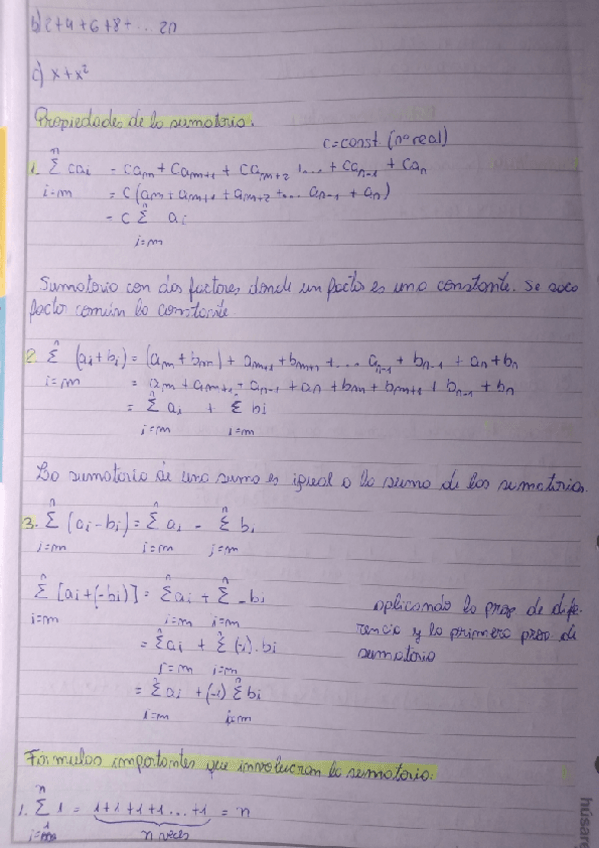 b) 2+4+6+8+... 2n
c) x+x²
Propiedades de la sumatoria.
c=const (nº real)
1. n Σ i=m cai = cam + cam+1 + cam+2 +... + can-1 + can
= c(am + am+1 + am+2 +... an-1 + an)
= c n Σ i=m ai
Sumatoria con dos factores donde un factor es una constante. Se saca
factor común la constante
2. n Σ i=m (ai+bi) = (am+bm) + am+1 + bm+1 +... an-1 + bn-1 + an+bn
= am + am+1 + an-1 + an + bm + bm+1 + bn-1 + bn
= n Σ i=m ai + Σ i=m bi
La sumatoria de una suma es igual a la suma de las sumatorias.
3. n Σ i=m (ai-bi) = n Σ i=m ai - n Σ i=m bi
n Σ i=m [ai+(-bi)] = n Σ i=m ai + n Σ i=m -bi
aplicando la prop de dife
rencia y la primera prop di
sumatoria
= n Σ i=m ai + n Σ i=m (-1).bi
= n Σ i=m ai + (-1) n Σ i=m bi
Fórmulas importantes que involucran la sumatoria:
1. n Σ i=1 1 = 1+1+1+1...+1 = n
n veces
húsares